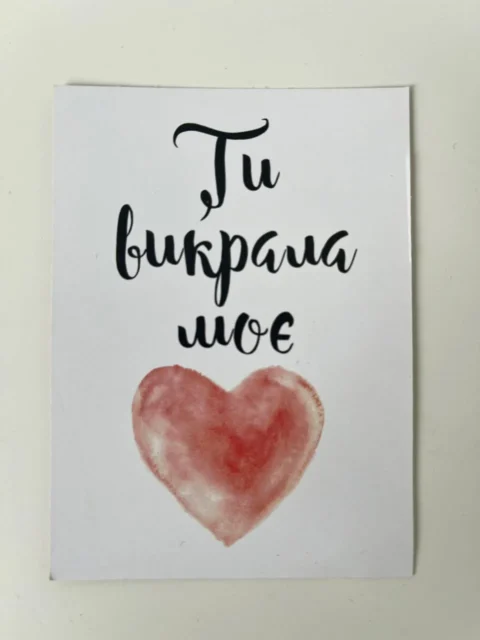 Ти
викрала
моє